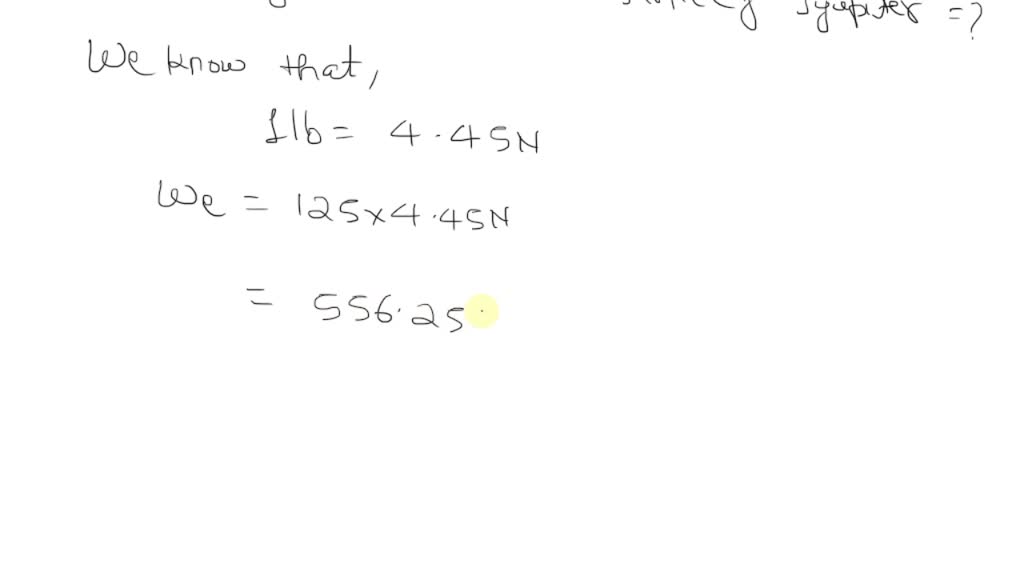 Jupiter = ?
We know that,
1lb = 4.45N
We = 125×4.45N
= 556.25